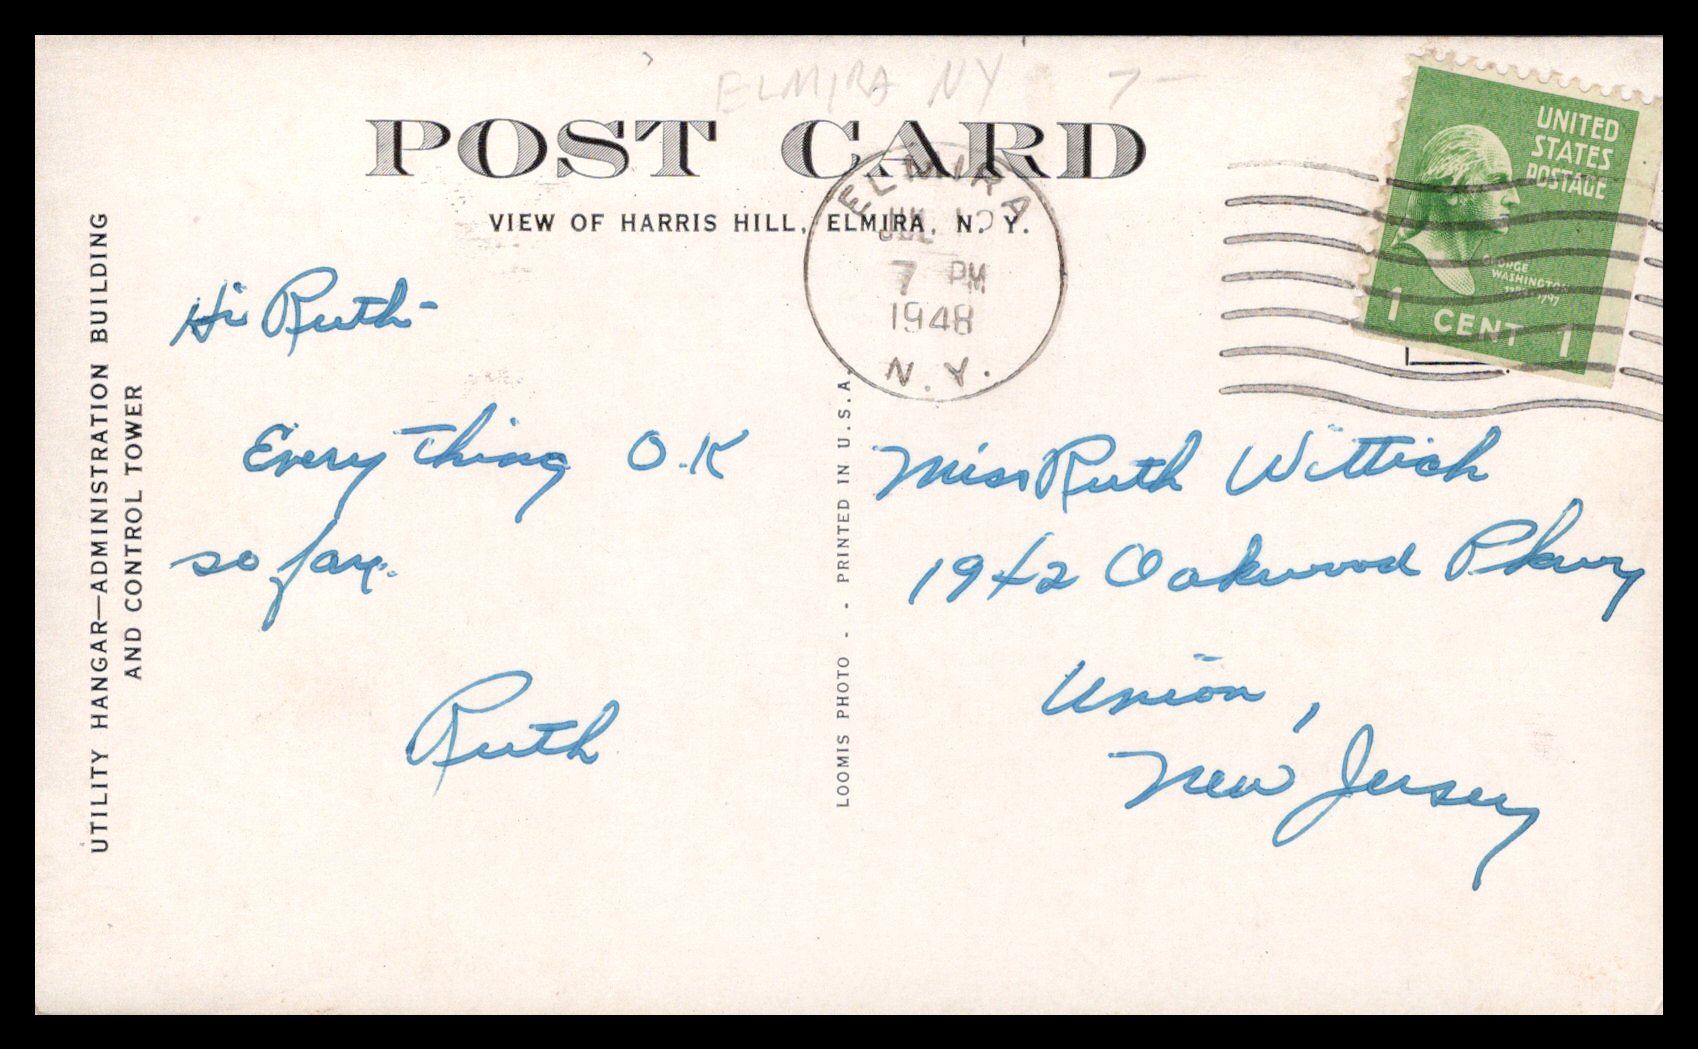 ELMIRA NY 7-
POST CARD
VIEW OF HARRIS HILL, ELMIRA, N. Y.
UTILITY HANGAR—ADMINISTRATION BUILDING
AND CONTROL TOWER
Hi Ruth-
Everything O.K
so far.
Ruth
LOOMIS PHOTO - - PRINTED IN U.S.A.
ELMIRA
JUL
7 PM
1948
N.Y.
UNITED
STATES
POSTAGE
GEORGE
WASHINGTON
1 CENT 1
Miss Ruth Wittich
1942 Oakwood Pkwy
Union,
New Jersey